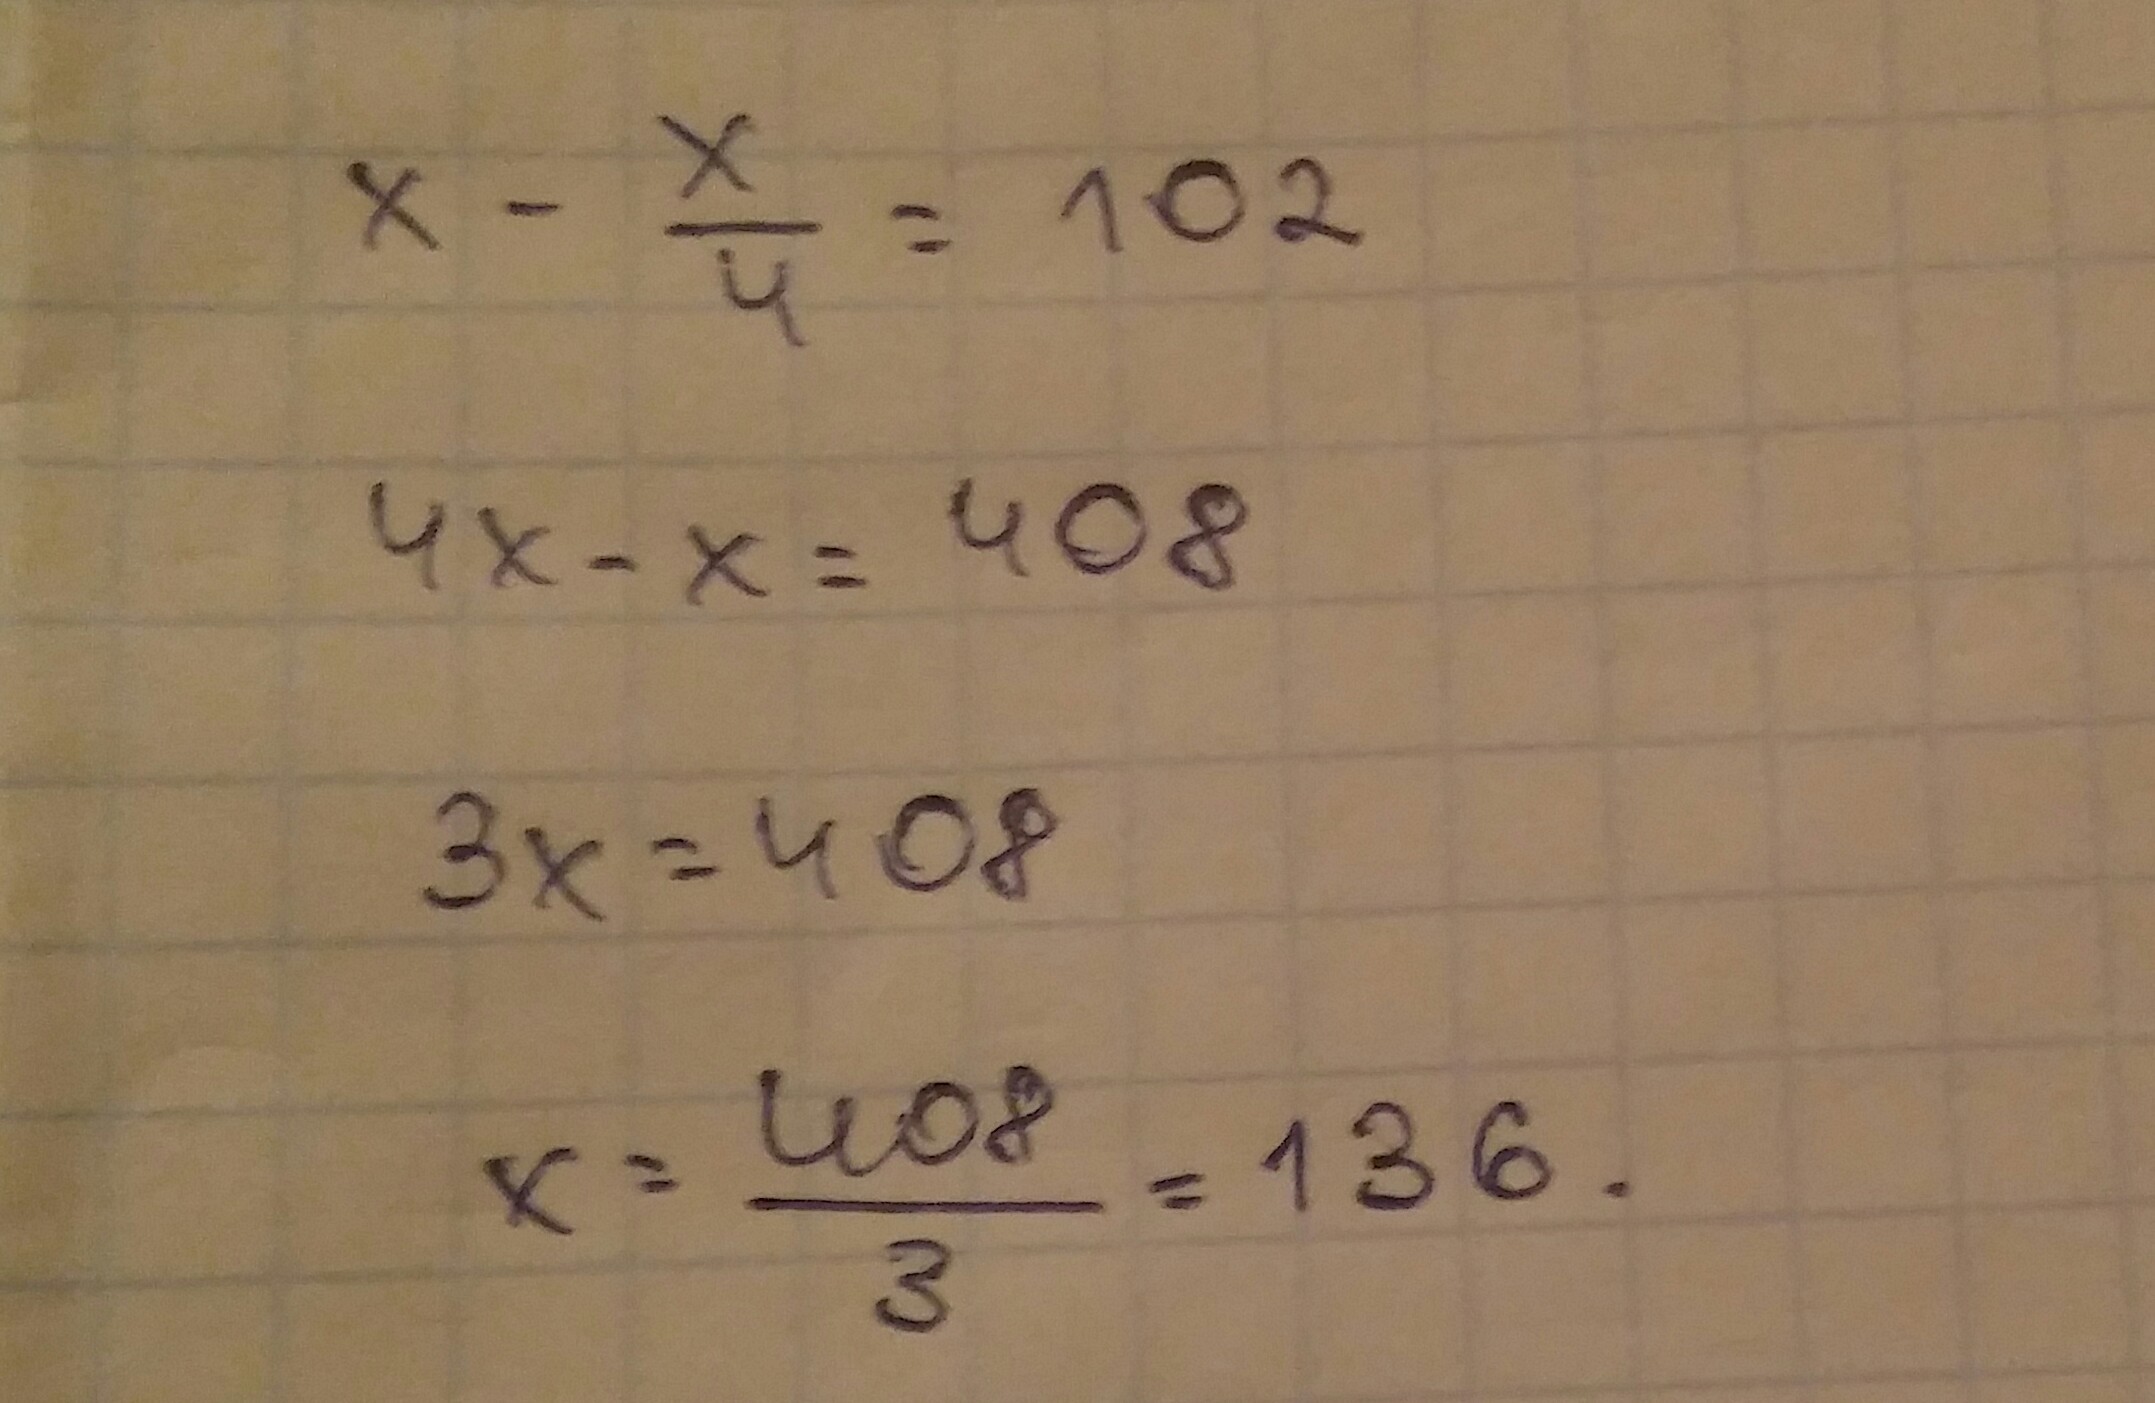 x - x/4 = 102
4x - x = 408
3x = 408
x = 408/3 = 136.